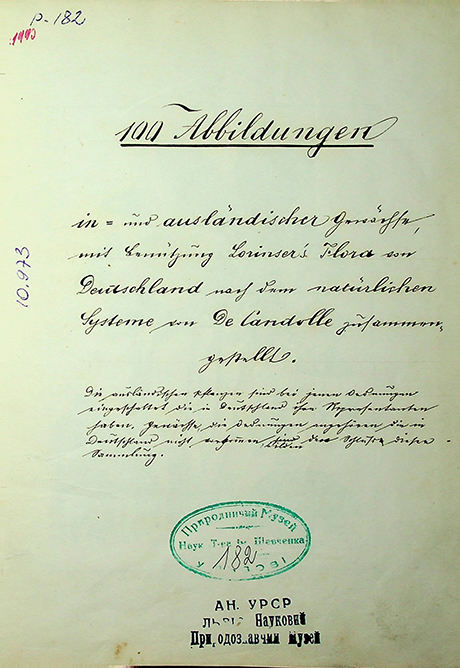 P-182
1993
100 Abbildungen
in = und ausländischer Gewächse,
mit Benützung Lorinser's Flora von
Deutschland nach dem natürlichen
Systeme von De Candolle zusammen,
gestellt.
Die ausländischen Pflanzen sind bei jenen Ordnungen
eingeschaltet die in Deutschland ihre Representanten
haben. Gewächse, die Ordnungen angehören die in
Deutschland nicht bilden den Schluss dieser
Sammlung.
10.973
Природничий Музей
Наук. Т-ва ім. Шевченка
182
АН. УРСР
Науковий
музей